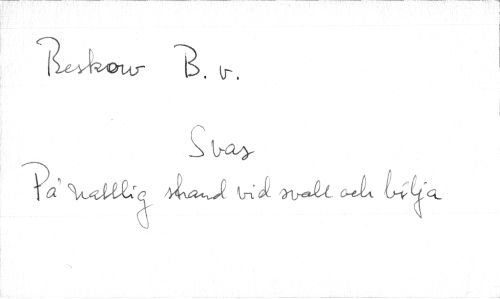 Beskow B. v.
Svar
På nattlig strand vid svall och bölja